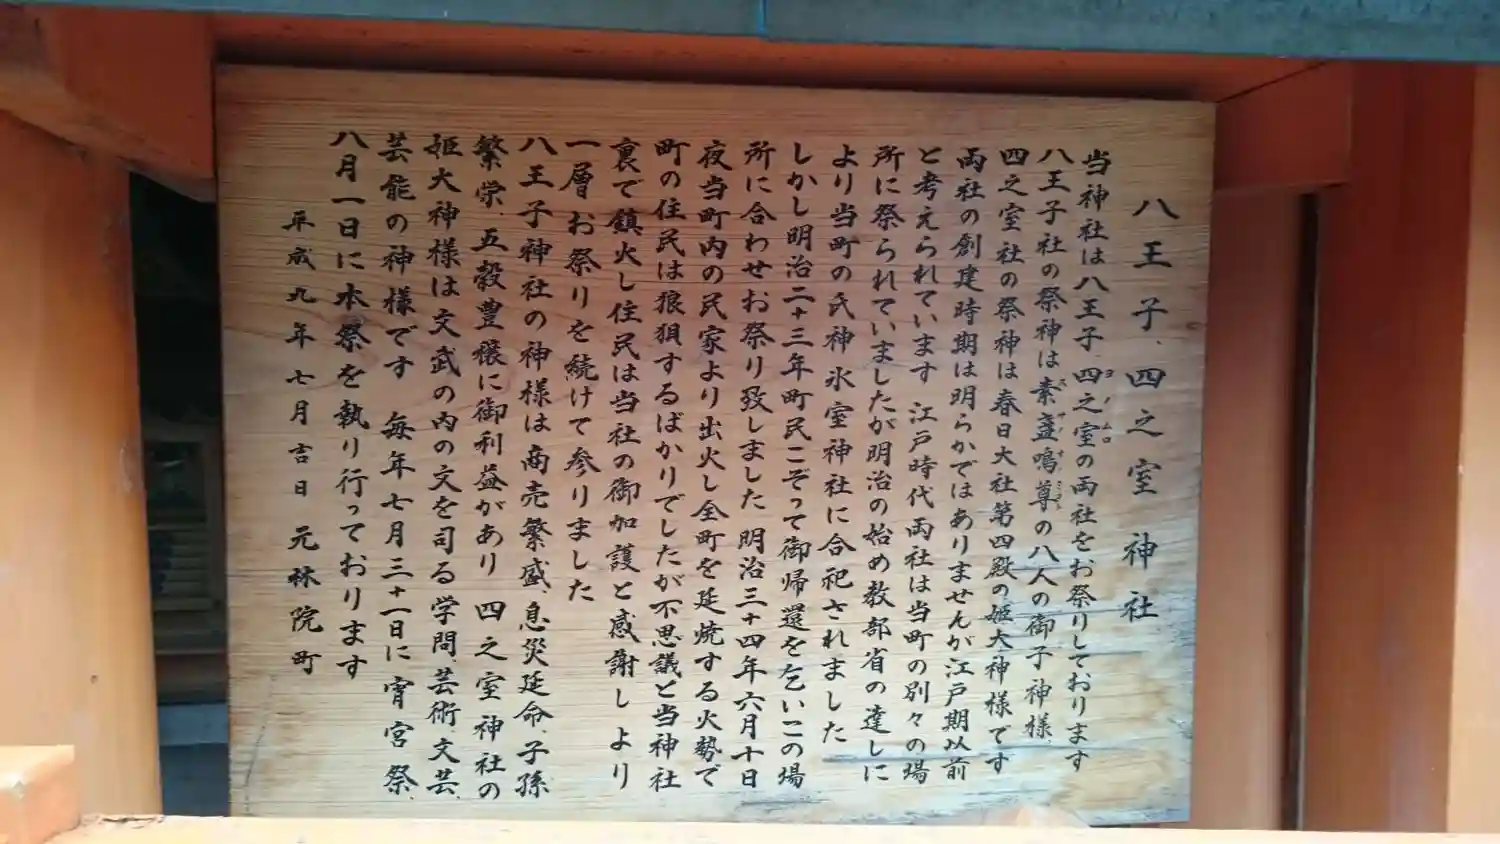 八王子、四之室神社
当神社は八王子、四之室の両社をお祭りしております
ヨノムロ
八王子社の祭神は素盞鳴尊の八人の御子神様、
スサノオノミコト
四之室社の祭神は春日大社第四殿の姫大神様です
両社の創建時期は明らかではありませんが江戸期以前
と考えられています 江戸時代両社は当町の別々の場
所に祭られていましたが明治の始め教部省の達しに
より当町の氏神氷室神社に合祀されました
しかし明治二十三年町民こぞって御帰還を乞いこの場
所に合わせお祭り致しました 明治三十四年六月十日
夜当町内の民家より出火し全町を延焼する火勢で
町の住民は狼狽するばかりでしたが不思議と当神社
裏で鎮火し住民は当社の御加護と感謝し より
一層お祭りを続けて参りました
八王子神社の神様は商売繁盛、息災延命、子孫
繁栄、五穀豊穣に御利益があり 四之室神社の
姫大神様は文武の内の文を司る学問、芸術、文芸、
芸能の神様です 毎年七月三十一日に宵宮祭、
八月一日に本祭を執り行っております
平成九年七月吉日 元林院町